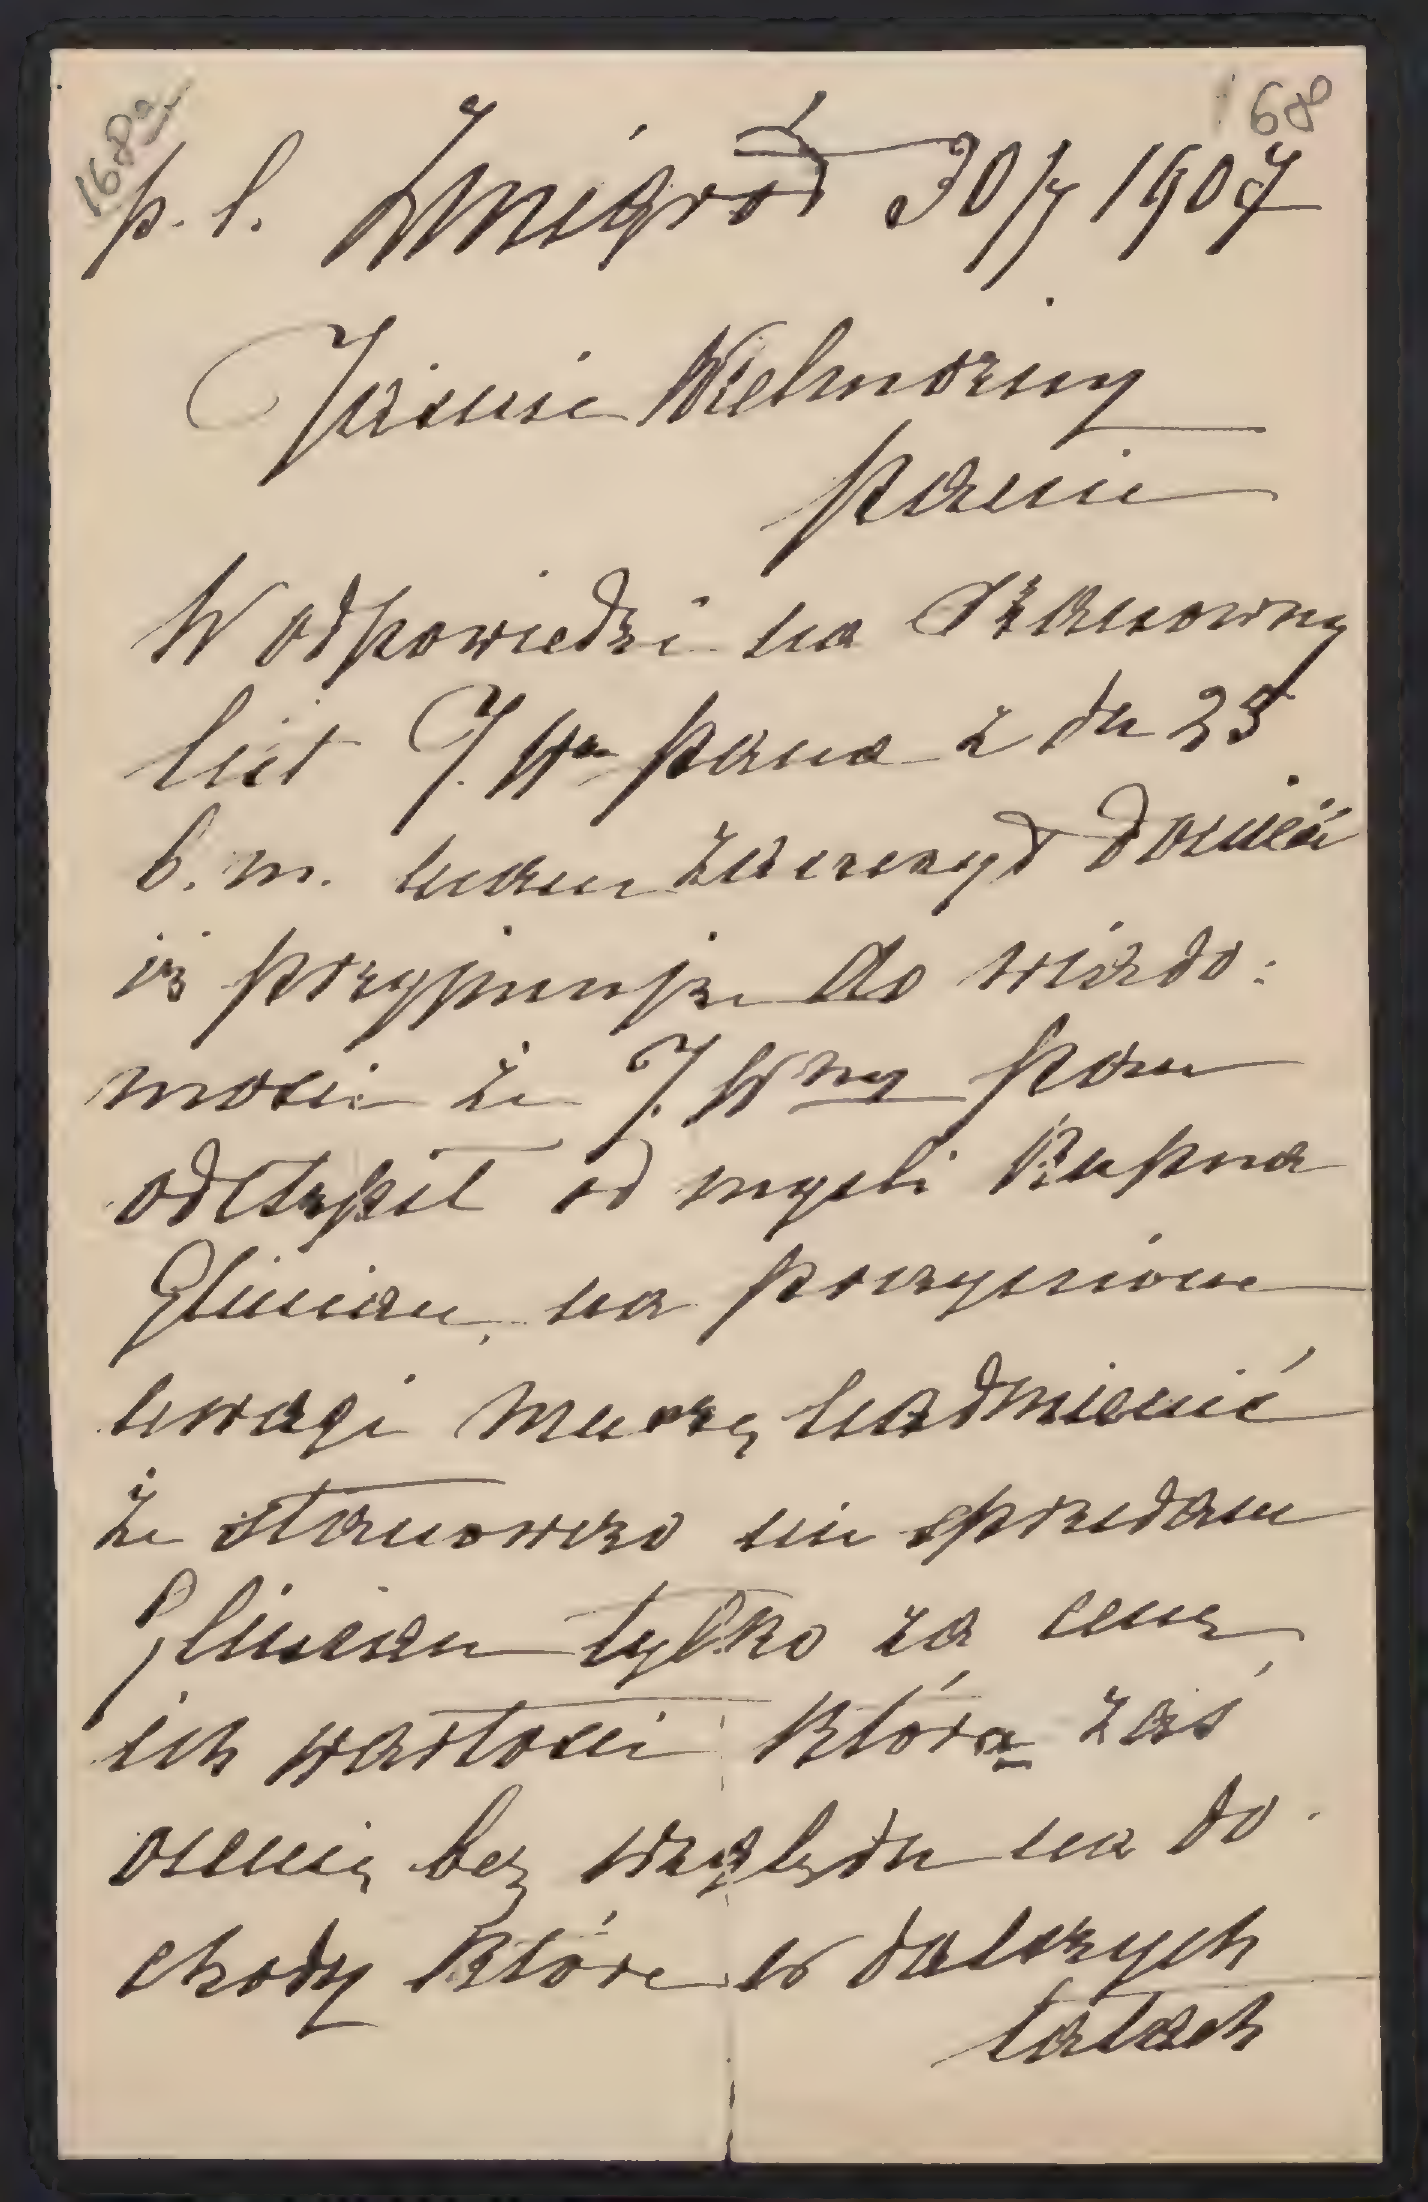 168a
168
p. l. Żmigród 30/7 1907
Jaśnie Wielmożny
Panie
W odpowiedzi na Szanowny
list J. Wn Pana z dn 25
b. m. mam zaszczyt donieść
iż przyjmuję do wiado:
mości że J. Wny Pan
odstąpił od myśli kupna
Glinian, na poczynione
uwagi muszę nadmienić
że stanowczo nie sprzedam
Glinian tylko za cenę
ich wartości którą zaś
ocenię bez względu na do-
chody które w dalszych
latach